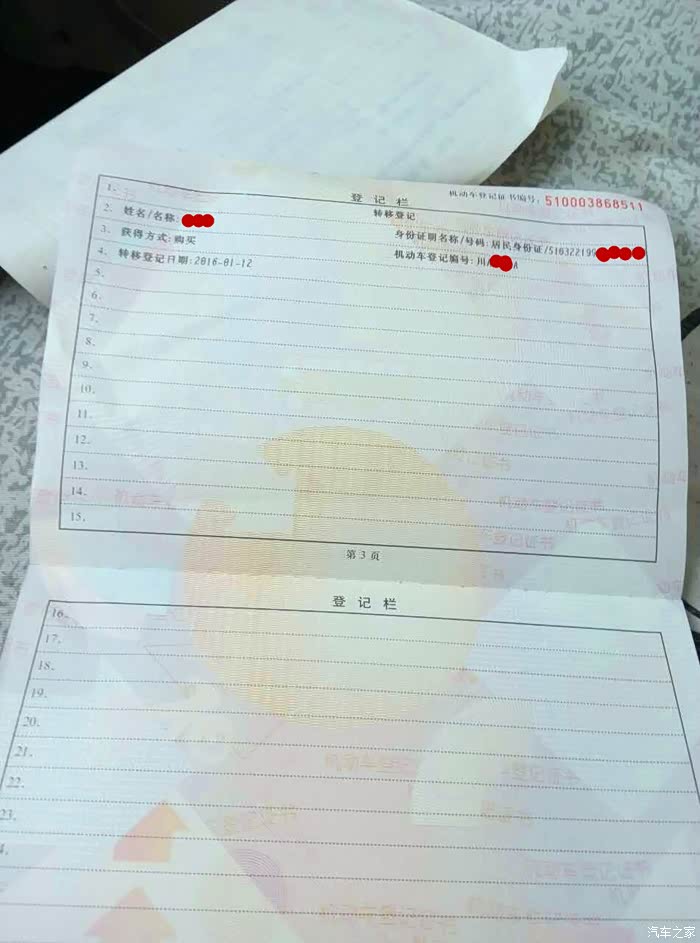 登 记 栏 机动车登记证书编号: 510003868511
1. 转移登记
2. 姓名/名称: 身份证明名称/号码: 居民身份证/510322199
3. 获得方式: 购买 机动车登记编号: 川A A
4. 转移登记日期: 2016-01-12
5.
6.
7.
8.
9.
10.
11.
12.
13.
14.
15.
第 3 页
登 记 栏
16.
17.
18.
19.
20.
21.
22.
23.
4.
汽车之家